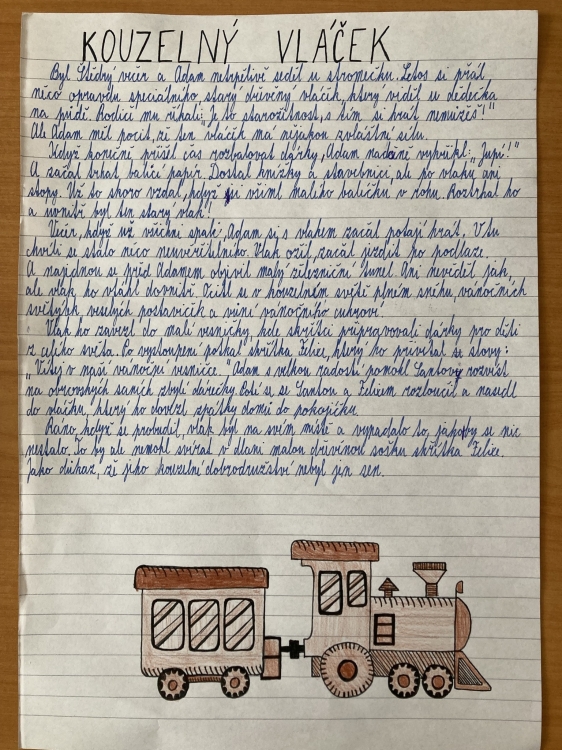 KOUZELNÝ VLÁČEK
Byl Štědrý večer a Adam netrpělivě seděl u stromečku. Letos si přál
něco opravdu speciálního, starý dřevěný vláček, který viděl u dědečka
na půdě. Rodiče mu říkali: „Je to starožitnost, s tím si hrát nemůžeš!"
Ale Adam měl pocit, že ten vláček má nějakou zvláštní sílu.
Když konečně přišel čas rozbalovat dárky, Adam nadšeně vykřikl: „Jupí!"
A začal trhat balící papír. Dostal knížky a stavebnici, ale po vlaku ani
stopy. Už to skoro vzdal, když si všiml malého balíčku v rohu. Roztrhal ho
a uvnitř byl ten starý vlak!
Večer, když už všichni spali, Adam si s vlakem začal potají hrát. V tu
chvíli se stalo něco neuvěřitelného. Vlak ožil, začal jezdit po podlaze.
A najednou se před Adamem objevil malý železniční tunel. Ani nevěděl jak,
ale vlak ho vtáhl dovnitř. Ocitl se v kouzelném světě plném sněhu, vánočních
světýlek, veselých postaviček a vůní vánočního cukroví.
Vlak ho zavezl do malé vesničky, kde skřítci připravovali dárky pro děti
z celého světa. Po vystoupení potkal skřítka Felice, který ho přivítal se slovy:
„Vítej v naší vánoční vesničce." Adam s velkou radostí pomohl Santovy rozvést
na obrovských saních zbylé dárečky. Poté se se Santou a Felicem rozloučil a nasedl
do vláčku, který ho dovezl zpátky domů do pokojíčku.
Ráno, když se probudil, vlak byl na svém místě a vypadalo to, jakoby se nic
nestalo. To by ale nemohl svírat v dlani malou dřevěnou sošku skřítka Felice.
Jako důkaz, že jeho kouzelné dobrodružství nebyl jen sen.